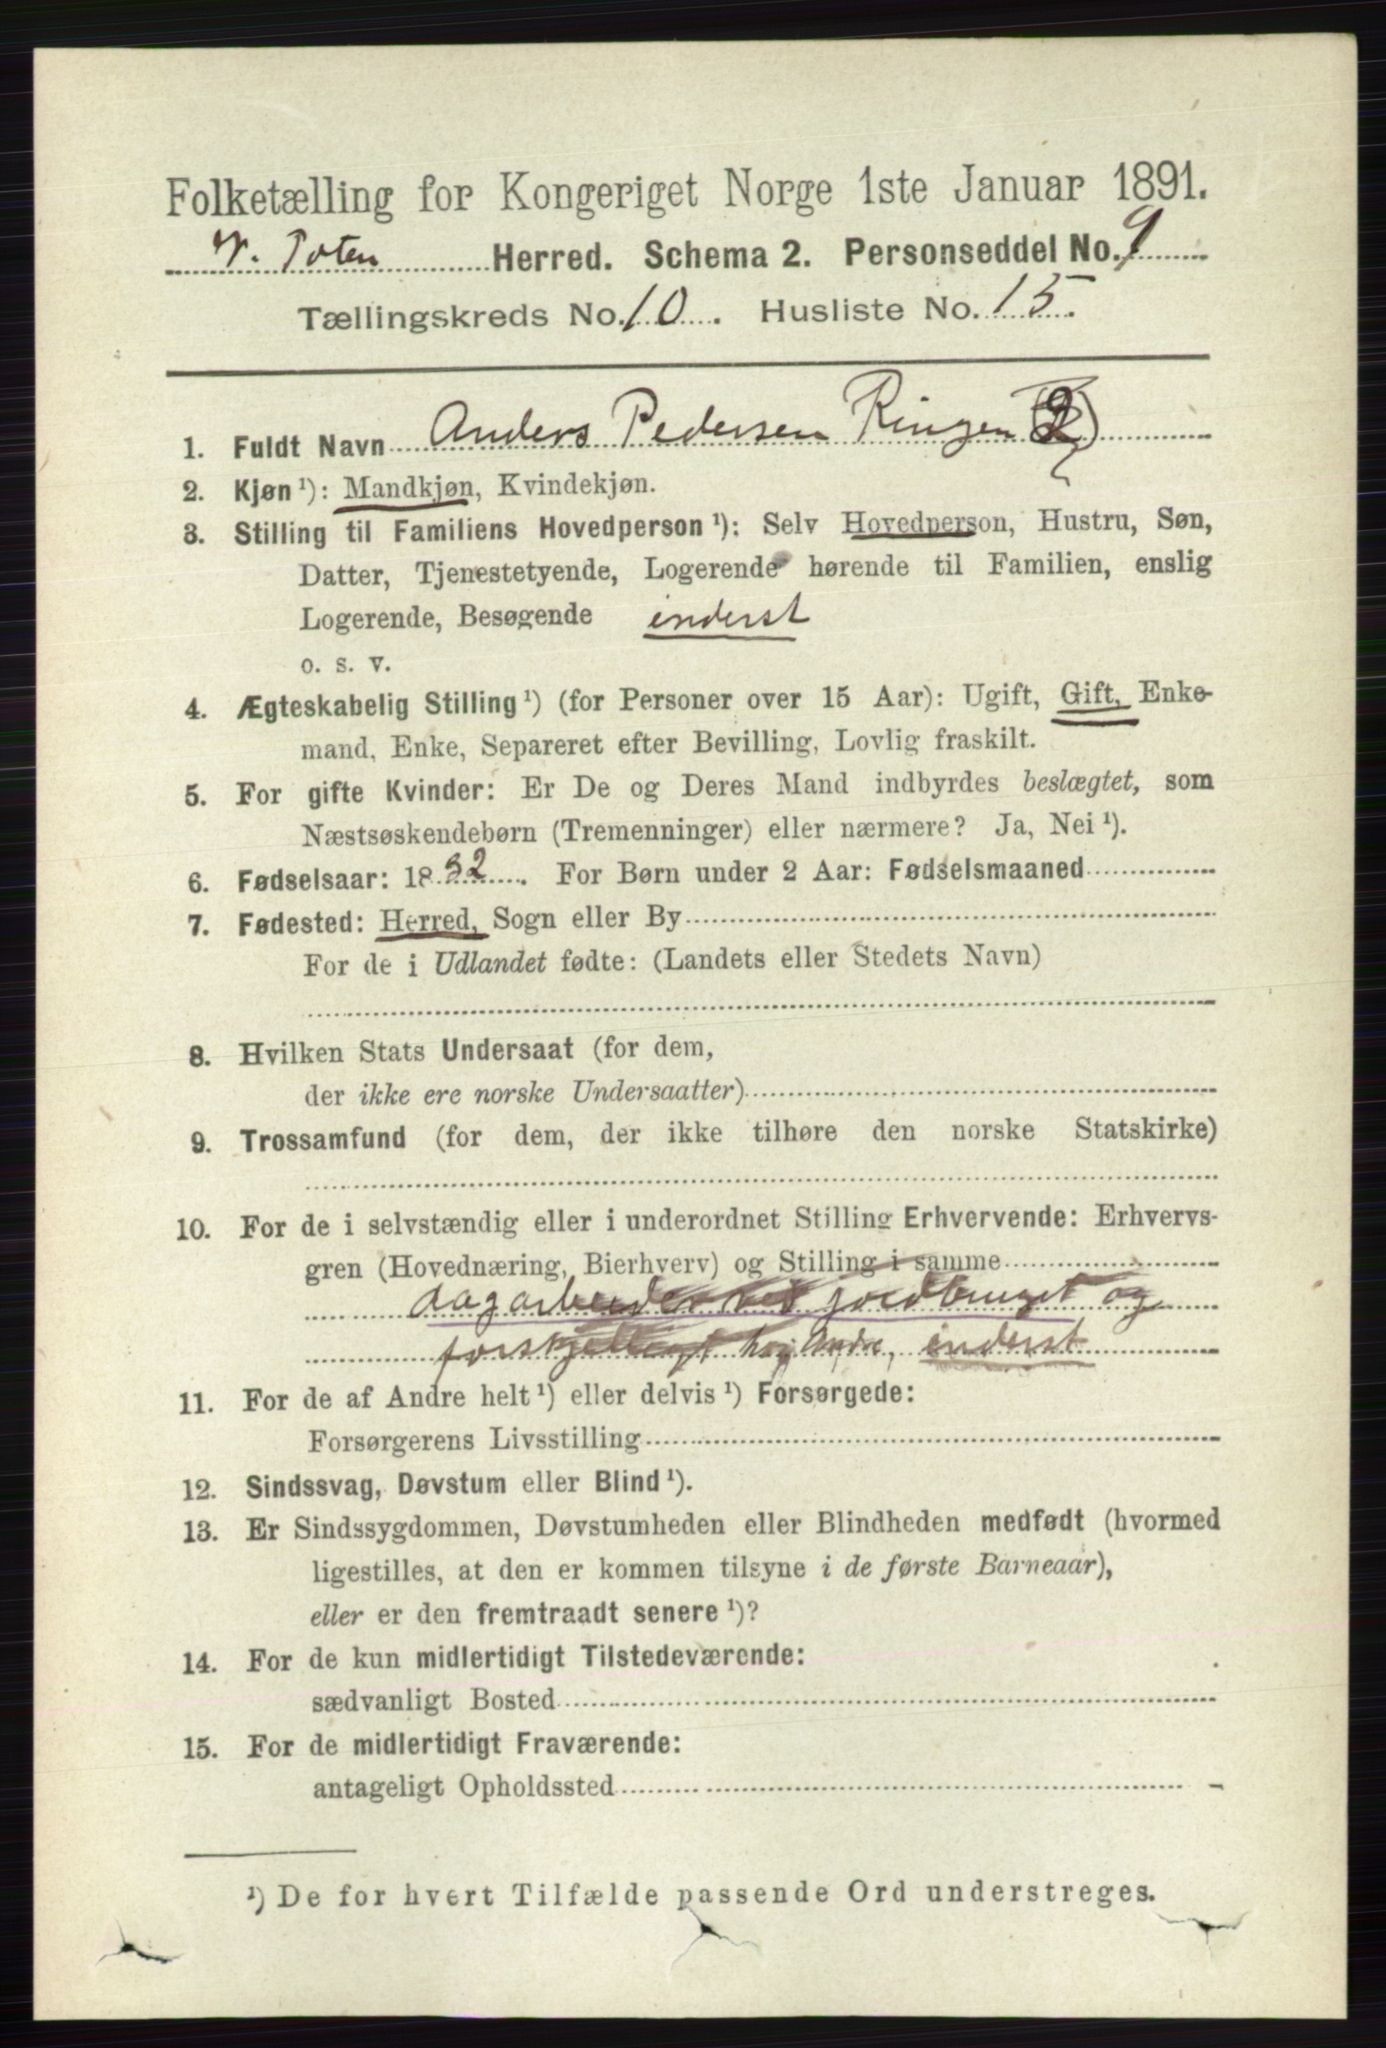 Folketælling for Kongeriget Norge 1ste Januar 1891.
V. Toten Herred. Schema 2. Personseddel No. 9
Tællingskreds No. 10. Husliste No. 15.
1. Fuldt Navn Anders Pedersen Ringen
2. Kjøn ¹): Mandkjøn, Kvindekjøn.
3. Stilling til Familiens Hovedperson ¹): Selv Hovedperson, Hustru, Søn,
Datter, Tjenestetyende, Logerende hørende til Familien, enslig
Logerende, Besøgende inderst
o. s. v.
4. Ægteskabelig Stilling ¹) (for Personer over 15 Aar): Ugift, Gift, Enke-
mand, Enke, Separeret efter Bevilling, Lovlig fraskilt.
5. For gifte Kvinder: Er De og Deres Mand indbyrdes beslægtet, som
Næstsøskendebørn (Tremenninger) eller nærmere? Ja, Nei ¹).
6. Fødselsaar: 1832. For Børn under 2 Aar: Fødselsmaaned
7. Fødested: Herred, Sogn eller By
For de i Udlandet fødte: (Landets eller Stedets Navn)
8. Hvilken Stats Undersaat (for dem,
der ikke ere norske Undersaatter)
9. Trossamfund (for dem, der ikke tilhøre den norske Statskirke)
10. For de i selvstændig eller i underordnet Stilling Erhvervende: Erhvervs-
gren (Hovednæring, Bierhverv) og Stilling i samme
dagarbeider ved jordbruget og
forskjelligt hos Andre, inderst
11. For de af Andre helt ¹) eller delvis ¹) Forsørgede:
Forsørgerens Livsstilling
12. Sindssvag, Døvstum eller Blind ¹).
13. Er Sindssygdommen, Døvstumheden eller Blindheden medfødt (hvormed
ligestilles, at den er kommen tilsyne i de første Barneaar),
eller er den fremtraadt senere ¹)?
14. For de kun midlertidigt Tilstedeværende:
sædvanligt Bosted
15. For de midlertidigt Fraværende:
antageligt Opholdssted
¹) De for hvert Tilfælde passende Ord understreges.